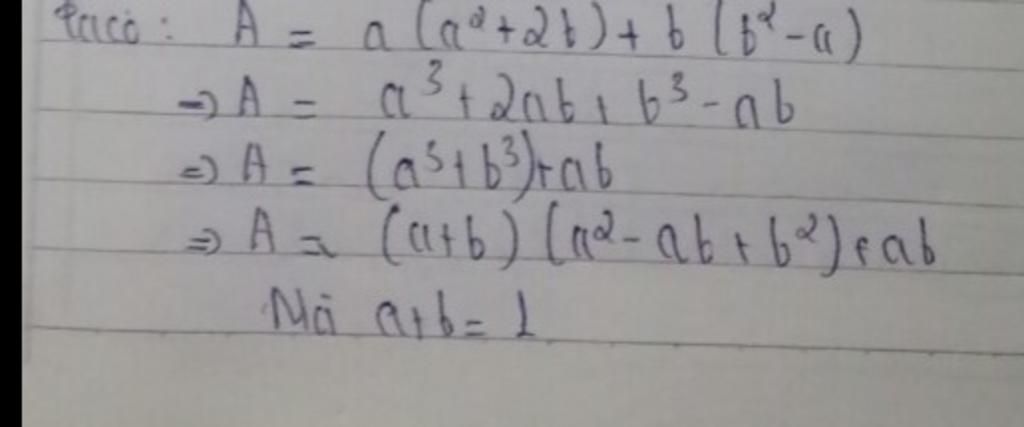 Ta có: A = a(a²+2b)+b(b²-a)
⇒ A = a³+2ab+b³-ab
⇒ A = (a³+b³)+ab
⇒ A = (a+b)(a²-ab+b²)+ab
Mà a+b=1